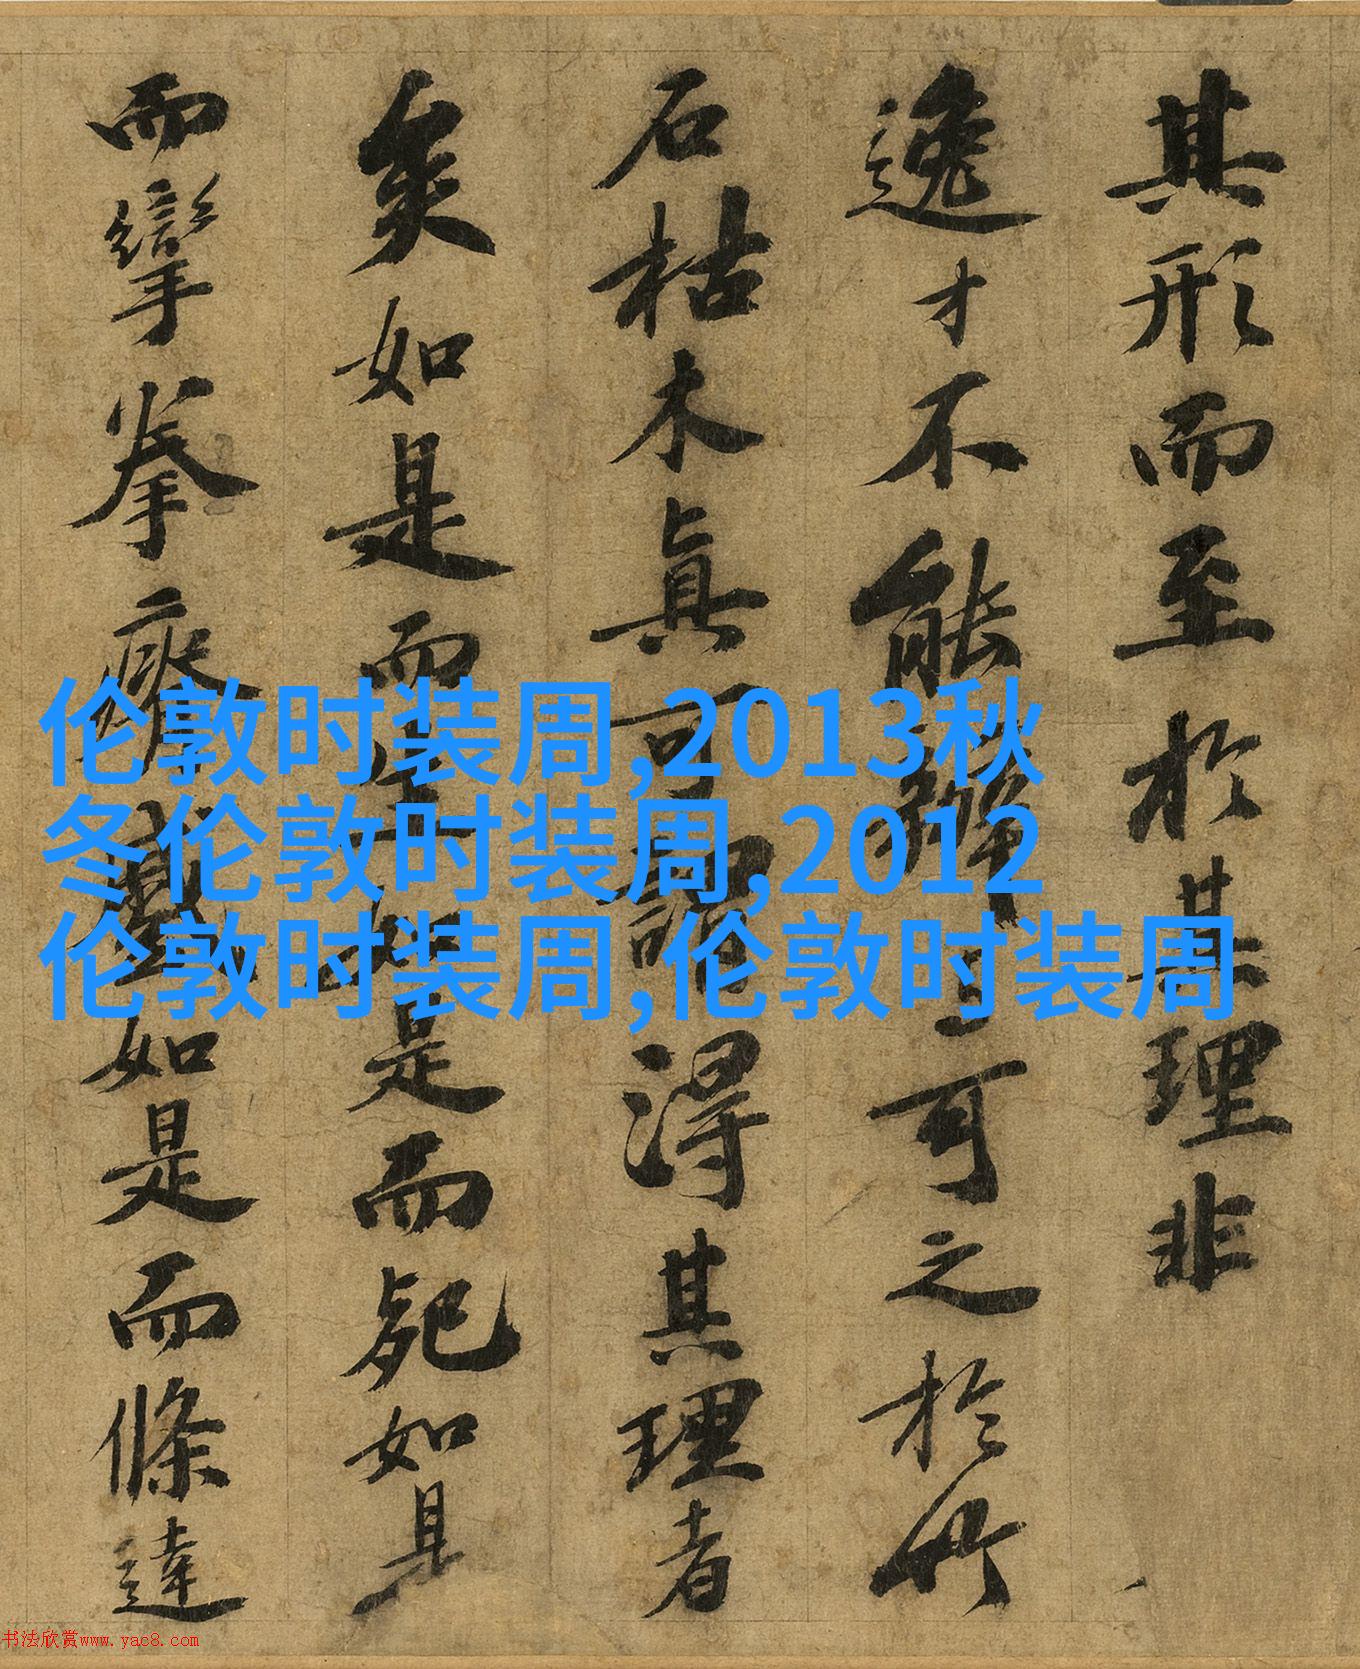 其形而至於其理非
逸才不能辦
可之於竹
石枯木真可謂得其理者
矣如是而生如是而死如是
而攣拳瘠蹙如是而條達
伦敦时装周,2013秋
冬伦敦时装周,2012
伦敦时装周,伦敦时装周
书法欣赏www.yac8.com